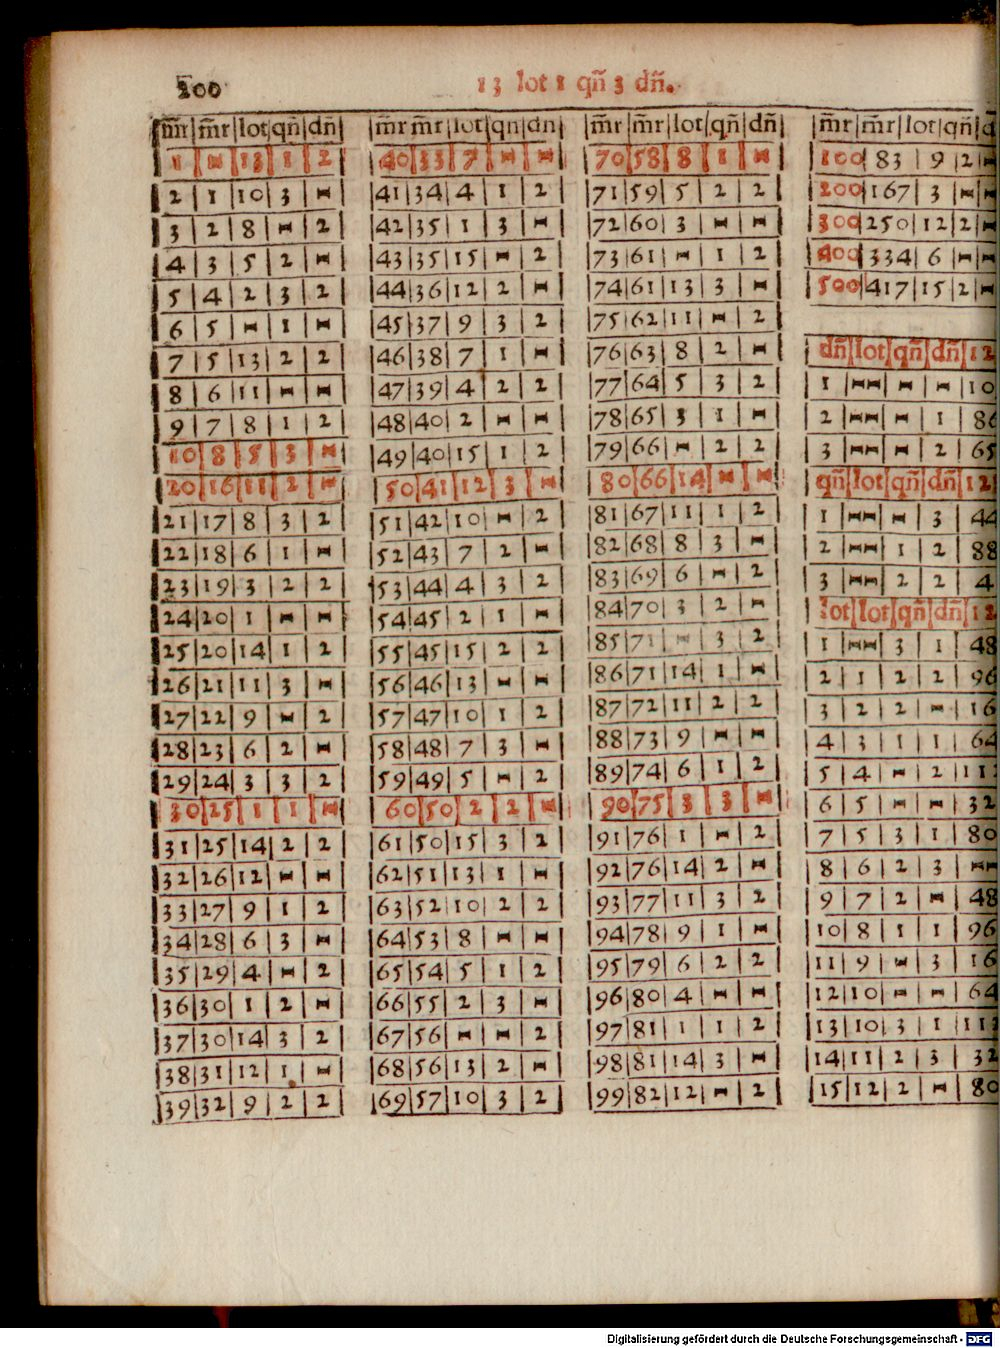 200
13 lot 1 qñ 3 dñ.
m̃r|m̃r|lot|qñ|dñ|
1|–|13|1|2|
2|1|10|3|–|
3|2|8|–|2|
4|3|5|2|–|
5|4|2|3|2|
6|5|–|1|–|
7|5|13|2|2|
8|6|11|–|–|
9|7|8|1|2|
10|8|5|3|–|
20|16|11|2|–|
21|17|8|3|2|
22|18|6|1|–|
23|19|3|2|2|
24|20|1|–|–|
25|20|14|1|2|
26|21|11|3|–|
27|22|9|–|2|
28|23|6|2|–|
29|24|3|3|2|
30|25|1|1|–|
31|25|14|2|2|
32|26|12|–|–|
33|27|9|1|2|
34|28|6|3|–|
35|29|4|–|2|
36|30|1|2|–|
37|30|14|3|2|
38|31|12|1|–|
39|32|9|2|2|
m̃r m̃r|lot|qñ|dñ|
40|33|7|–|–|
41|34|4|1|2|
42|35|1|3|–|
43|35|15|–|2|
44|36|12|2|–|
45|37|9|3|2|
46|38|7|1|–|
47|39|4|2|2|
48|40|2|–|–|
49|40|15|1|2|
50|41|12|3|–|
51|42|10|–|2|
52|43|7|2|–|
53|44|4|3|2|
54|45|2|1|–|
55|45|15|2|2|
56|46|13|–|–|
57|47|10|1|2|
58|48|7|3|–|
59|49|5|–|2|
60|50|2|2|–|
61|50|15|3|2|
62|51|13|1|–|
63|52|10|2|2|
64|53|8|–|–|
65|54|5|1|2|
66|55|2|3|–|
67|56|–|–|2|
68|56|13|2|–|
69|57|10|3|2|
m̃r|m̃r|lot|qñ|dñ|
70|58|8|1|–|
71|59|5|2|2|
72|60|3|–|–|
73|61|–|1|2|
74|61|13|3|–|
75|62|11|–|2|
76|63|8|2|–|
77|64|5|3|2|
78|65|3|1|–|
79|66|–|2|2|
80|66|14|–|–|
81|67|11|1|2|
82|68|8|3|–|
83|69|6|–|2|
84|70|3|2|–|
85|71|–|3|2|
86|71|14|1|–|
87|72|11|2|2|
88|73|9|–|–|
89|74|6|1|2|
90|75|3|3|–|
91|76|1|–|2|
92|76|14|2|–|
93|77|11|3|2|
94|78|9|1|–|
95|79|6|2|2|
96|80|4|–|–|
97|81|1|1|2|
98|81|14|3|–|
99|82|12|–|2|
m̃r|m̃r|lot|qñ|d
100|83|9|2|–
200|167|3|–|–
300|250|12|2|–
400|334|6|–|–
500|417|15|2|–
dñ|lot|qñ|dñ|12
1|–|–|–|10
2|–|–|1|86
3|–|–|2|65
qñ|lot|qñ|dñ|12
1|–|–|3|44
2|–|1|2|88
3|–|2|2|4
lot|lot|qñ|dñ|12
1|–|3|1|48
2|1|2|2|96
3|2|2|–|16
4|3|1|1|64
5|4|–|2|112
6|5|–|–|32
7|5|3|1|80
8|6|2|3|–
9|7|2|–|48
10|8|1|1|96
11|9|–|3|16
12|10|–|–|64
13|10|3|1|112
14|11|2|3|32
15|12|2|–|80
Digitalisierung gefördert durch die Deutsche Forschungsgemeinschaft - DFG